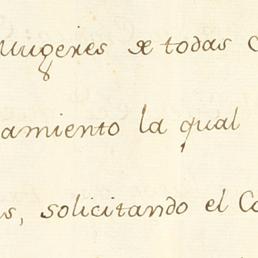 Mugeres de todas
amiento la qual
s, solicitando el Co